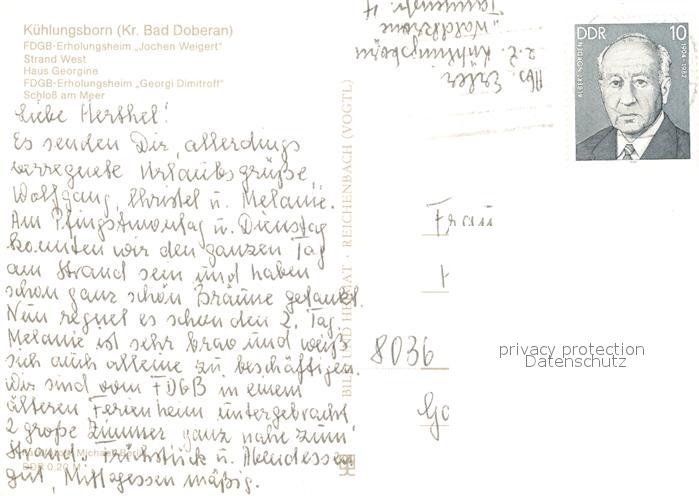 Kühlungsborn (Kr. Bad Doberan)
FDGB-Erholungsheim „Jochen Weigert"
Strand West
Haus Georgine
FDGB-Erholungsheim „Georgi Dimitroff"
Schloß am Meer
Liebe Herthel!
Es senden Dir, allerdings
verregnete Urlaubsgrüße
Wolfgang, Christel u. Melanie.
Am Pfingstmontag u. Dienstag
konnten wir den ganzen Tag
am Strand sein und haben
schon ganz schön Bräune getankt.
Nun regnet es schon den 2. Tag.
Melanie ist sehr brav und weiß
sich auch alleine zu beschäftigen.
Wir sind vom FDGB in einem
älteren Ferienheim untergebracht
2 große Zimmer ganz nahe zum
Strand. Frühstück u. Abendessen
gut, Mittagessen mäßig.
DDR 0,20 M
BILD UND HEIMAT · REICHENBACH (VOGTL)
Abs. Erler
z.Z. Kühlungsborn
„Waldkrone"
Tannenstr. 4
DDR 10
1904-1982
Frau
8036
privacy protection
Datenschutz